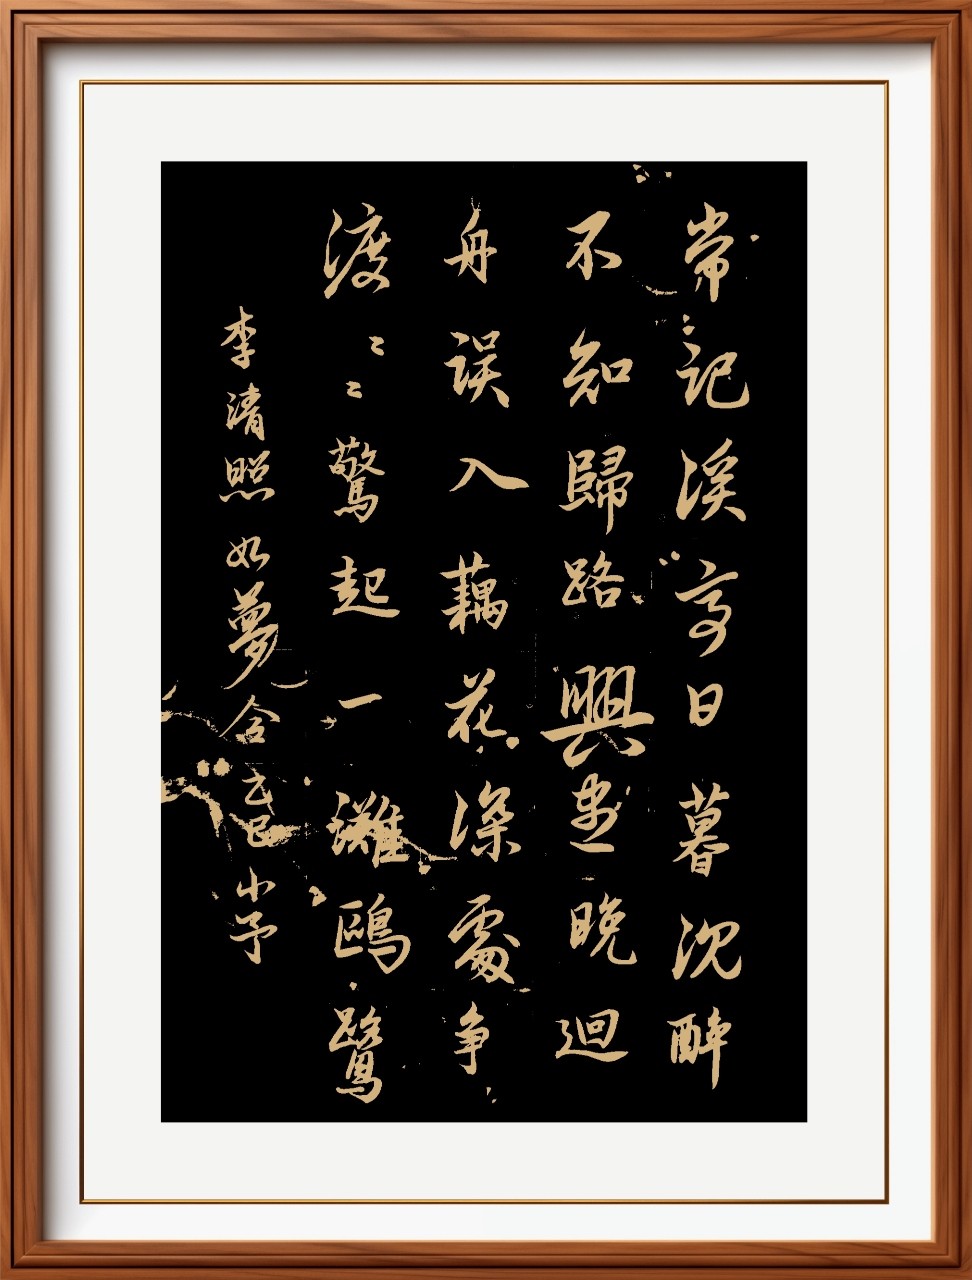 常記溪亭日暮沈醉
不知歸路興盡晚迴
舟誤入藕花深處争
渡〻〻驚起一灘鷗鷺
李清照如夢令乙巳小予